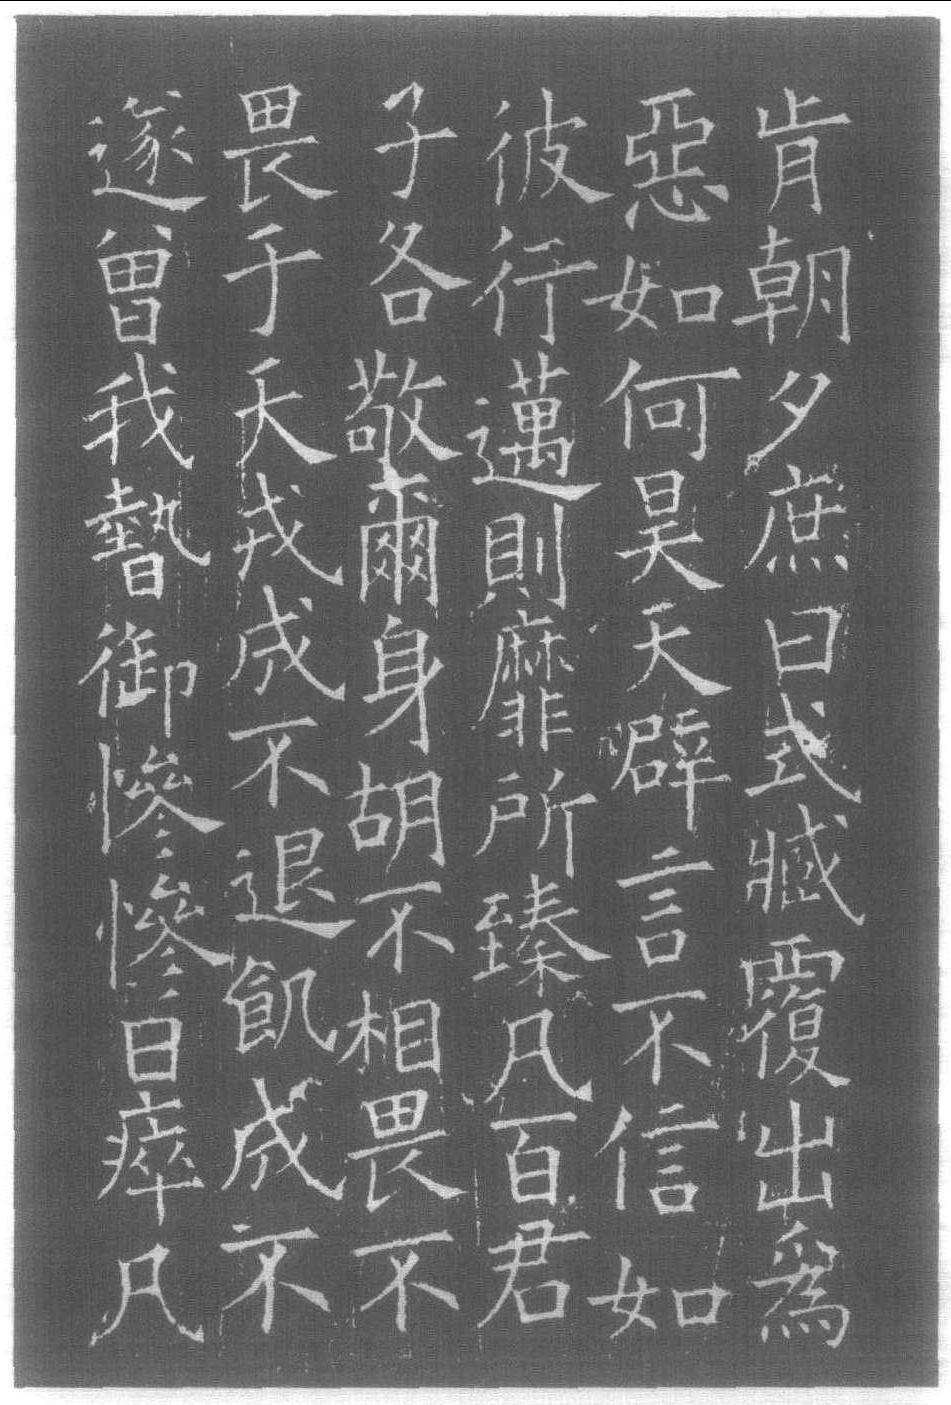 肯朝夕庶曰式臧覆出為
惡如何昊天辟言不信如
彼行邁則靡所臻凡百君
子各敬爾身胡不相畏不
畏于天戎成不退飢成不
遂曾我暬御慘慘日瘁凡